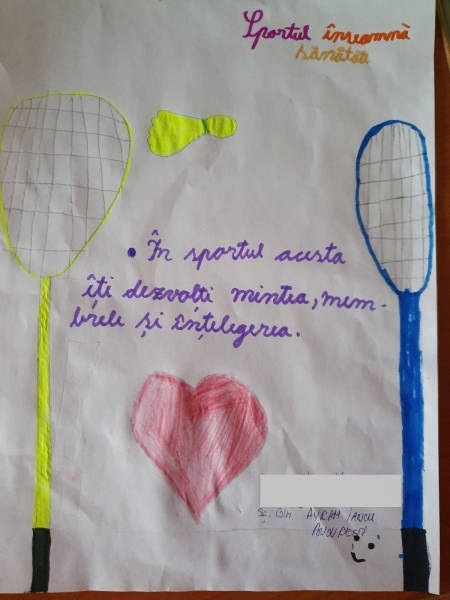 Sportul înseamnă
sănătate
• În sportul acesta
îți dezvolți mintea, mem-
brele și înțelegerea.
Șc. Gim AVRAM IANCU